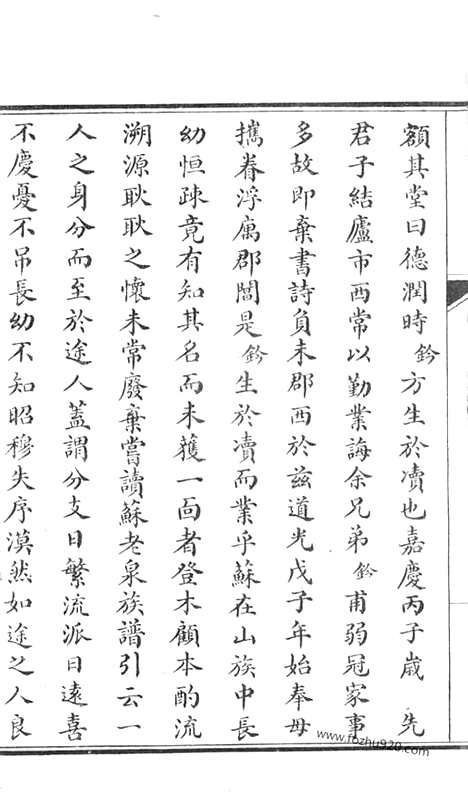 額其堂曰德潤時鈐方生於瀆也嘉慶丙子歲 先
君子結廬市西常以勤業誨余兄弟鈐甫弱冠家事
多故即棄書詩負耒郡西於兹道光戊子年始奉母
攜眷浮寓郡闔是鈐生於瀆而業乎蘇在山族中長
幼恒疎竟有知其名而未獲一面者登木顧本酌流
溯源耿耿之懷未常廢棄嘗讀蘇老泉族譜引云一
人之身分而至於途人蓋謂分支日繁流派日遠喜
不慶憂不吊長幼不知昭穆失序漠然如途之人良
www.fozhu920.com